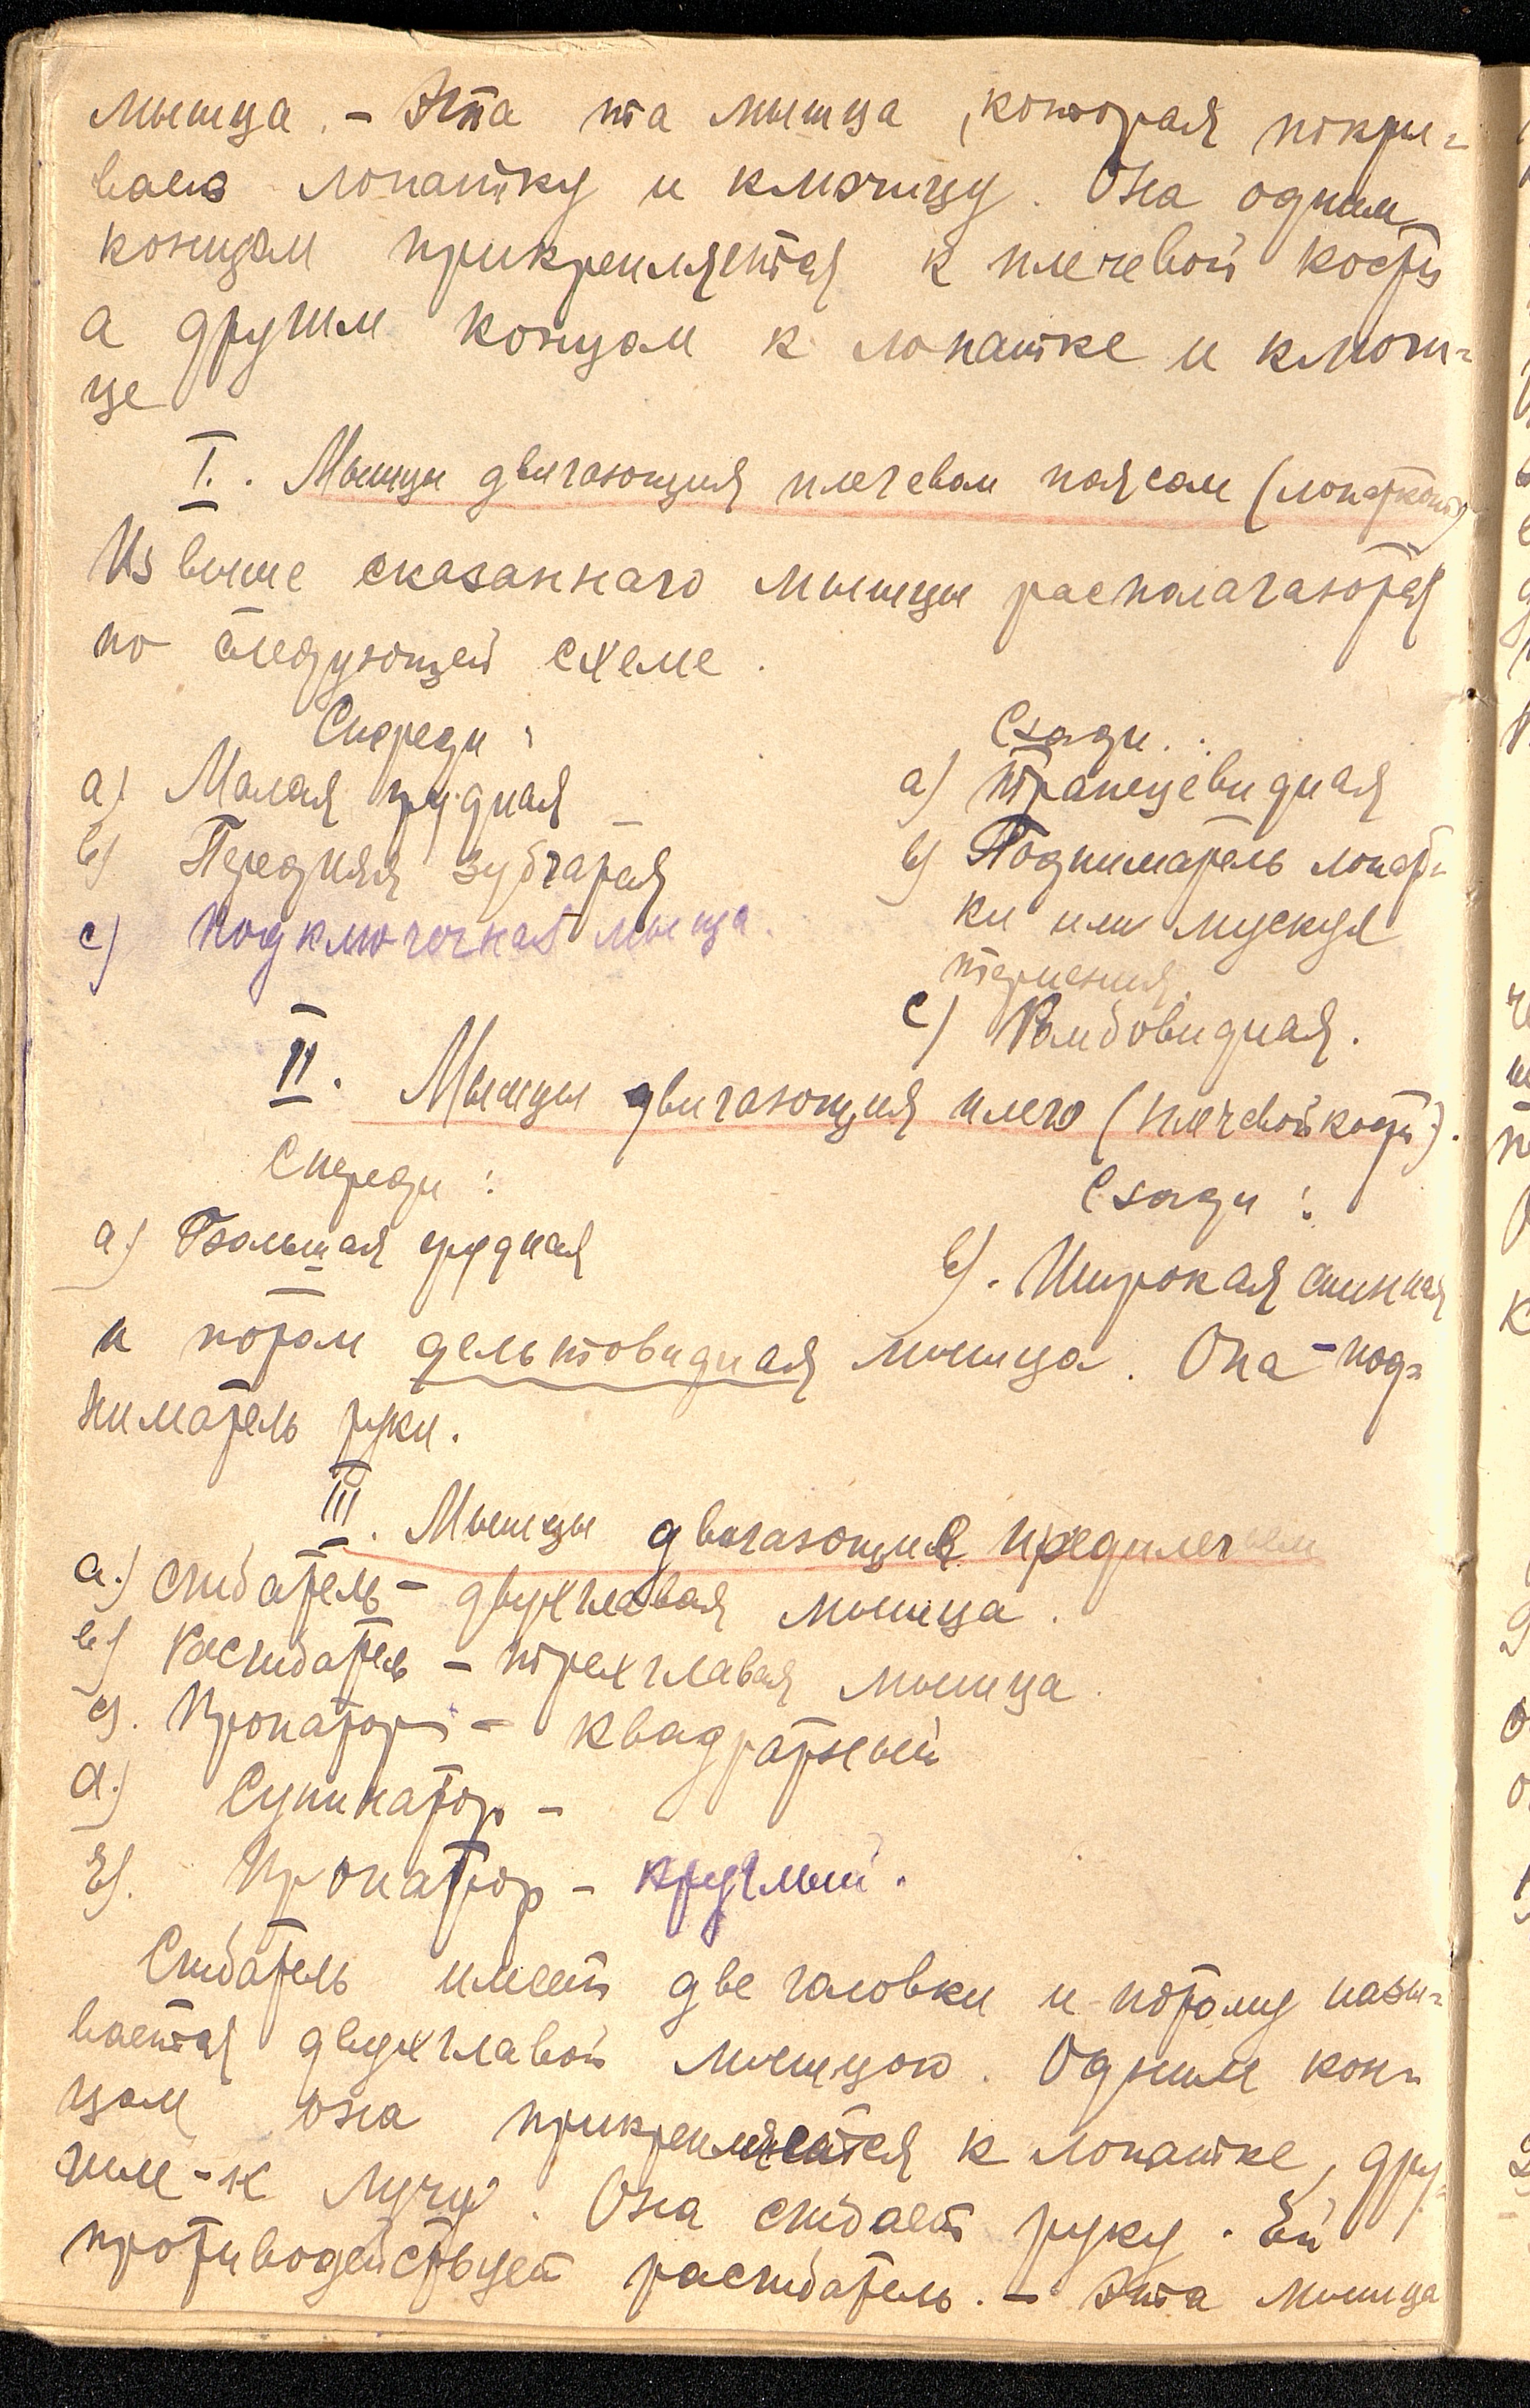 мышца. – Эта та мышца, которая покры=
ваев лопатку и ключицу. Она одним
концом прикрепляется к плечевой кости
а другим концом к лопатке и ключи=
це
I. Мышцы двигающия плечевым поясом (лопаткой)
Из выше сказаннаго мышцы располагаются
по следующей схеме.
Спереди:
а) Малая грудная
в) Передняя зубчатая
с) Подключечная мышца.
Сзади:
а) Трапецевидная
в) Подниматель лопат-
ки или мускул
терпения.
с) Ромбовидная.
II. Мышцы двигающия плечо (плечевой кости).
Спереди:
а) Большая грудная
Сзади:
в). Широкая спинная
и потом дельтовидная мышца. Она – под=
ниматель руки.
III. Мышцы двигающие предплечьем
а.) Сгибатель – двухглавая мышца.
в) Разгибатель – трехглавая мышца.
с). Пронатор – квадратный
d.) Супинатор –
E). Пронатор – круглый.
Сгибатель имеет две головки и потому назы=
вается двухглавой мышцою. Одним кон-
цом она прикрепляется к лопатке, дру-
гим – к лучу. Она сгибает руку. Ей
противодействует разгибатель. – Эта мышца